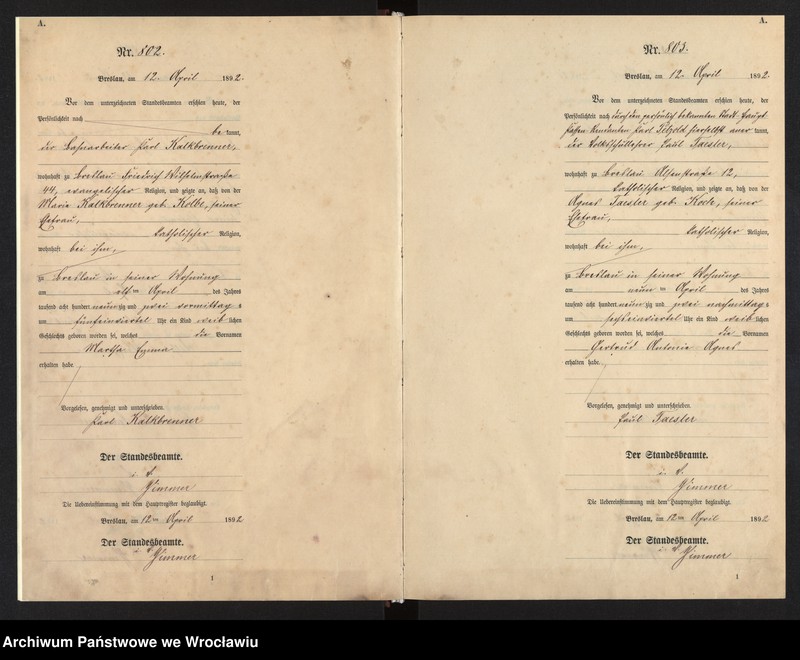 A.
Nr. 802.
Breslau, am 12. April 1892.
Vor dem unterzeichneten Standesbeamten erschien heute, der
Persönlichkeit nach
be kannt,
der Bahnarbeiter Karl Kalkbrenner,
wohnhaft zu Breslau Friedrich Wilhelmstraße
44, evangelischer Religion, und zeigte an, daß von der
Marie Kalkbrenner geb. Kolbe, seiner
Ehefrau,
katholischer Religion,
wohnhaft bei ihm,
zu Breslau in seiner Wohnung
am elften April des Jahres
tausend acht hundert neun zig und zwei vormittag s
um fünfeinviertel Uhr ein Kind weib lichen
Geschlechts geboren worden sei, welches die Vornamen
Martha Emma
erhalten habe
Vorgelesen, genehmigt und unterschrieben.
Karl Kalkbrenner
Der Standesbeamte.
i. V.
Zimmer
Die Uebereinstimmung mit dem Hauptregister beglaubigt.
Breslau, am 12ten April 1892
Der Standesbeamte.
i. V. Zimmer
1
A.
Nr. 803.
Breslau, am 12. April 1892.
Vor dem unterzeichneten Standesbeamten erschien heute, der
Persönlichkeit nach durch den persönlich bekannten Stadt Haupt
Kassen Rendanten Karl hierselbst aner kannt,
der Volksschullehrer Paul Taesler,
wohnhaft zu Breslau Alsenstraße 12,
katholischer Religion, und zeigte an, daß von der
Agnes Taesler geb. seiner
Ehefrau,
katholischer Religion,
wohnhaft bei ihm,
zu Breslau in seiner Wohnung
am neunten April des Jahres
tausend acht hundert neun zig und zwei nachmittag s
um sechseinviertel Uhr ein Kind weib lichen
Geschlechts geboren worden sei, welches die Vornamen
Gertrud Antonie Agnes
erhalten habe.
Vorgelesen, genehmigt und unterschrieben.
Paul Taesler
Der Standesbeamte.
i. V.
Zimmer
Die Uebereinstimmung mit dem Hauptregister beglaubigt.
Breslau, am 12ten April 1892
Der Standesbeamte.
i. V. Zimmer
1
Archiwum Państwowe we Wrocławiu